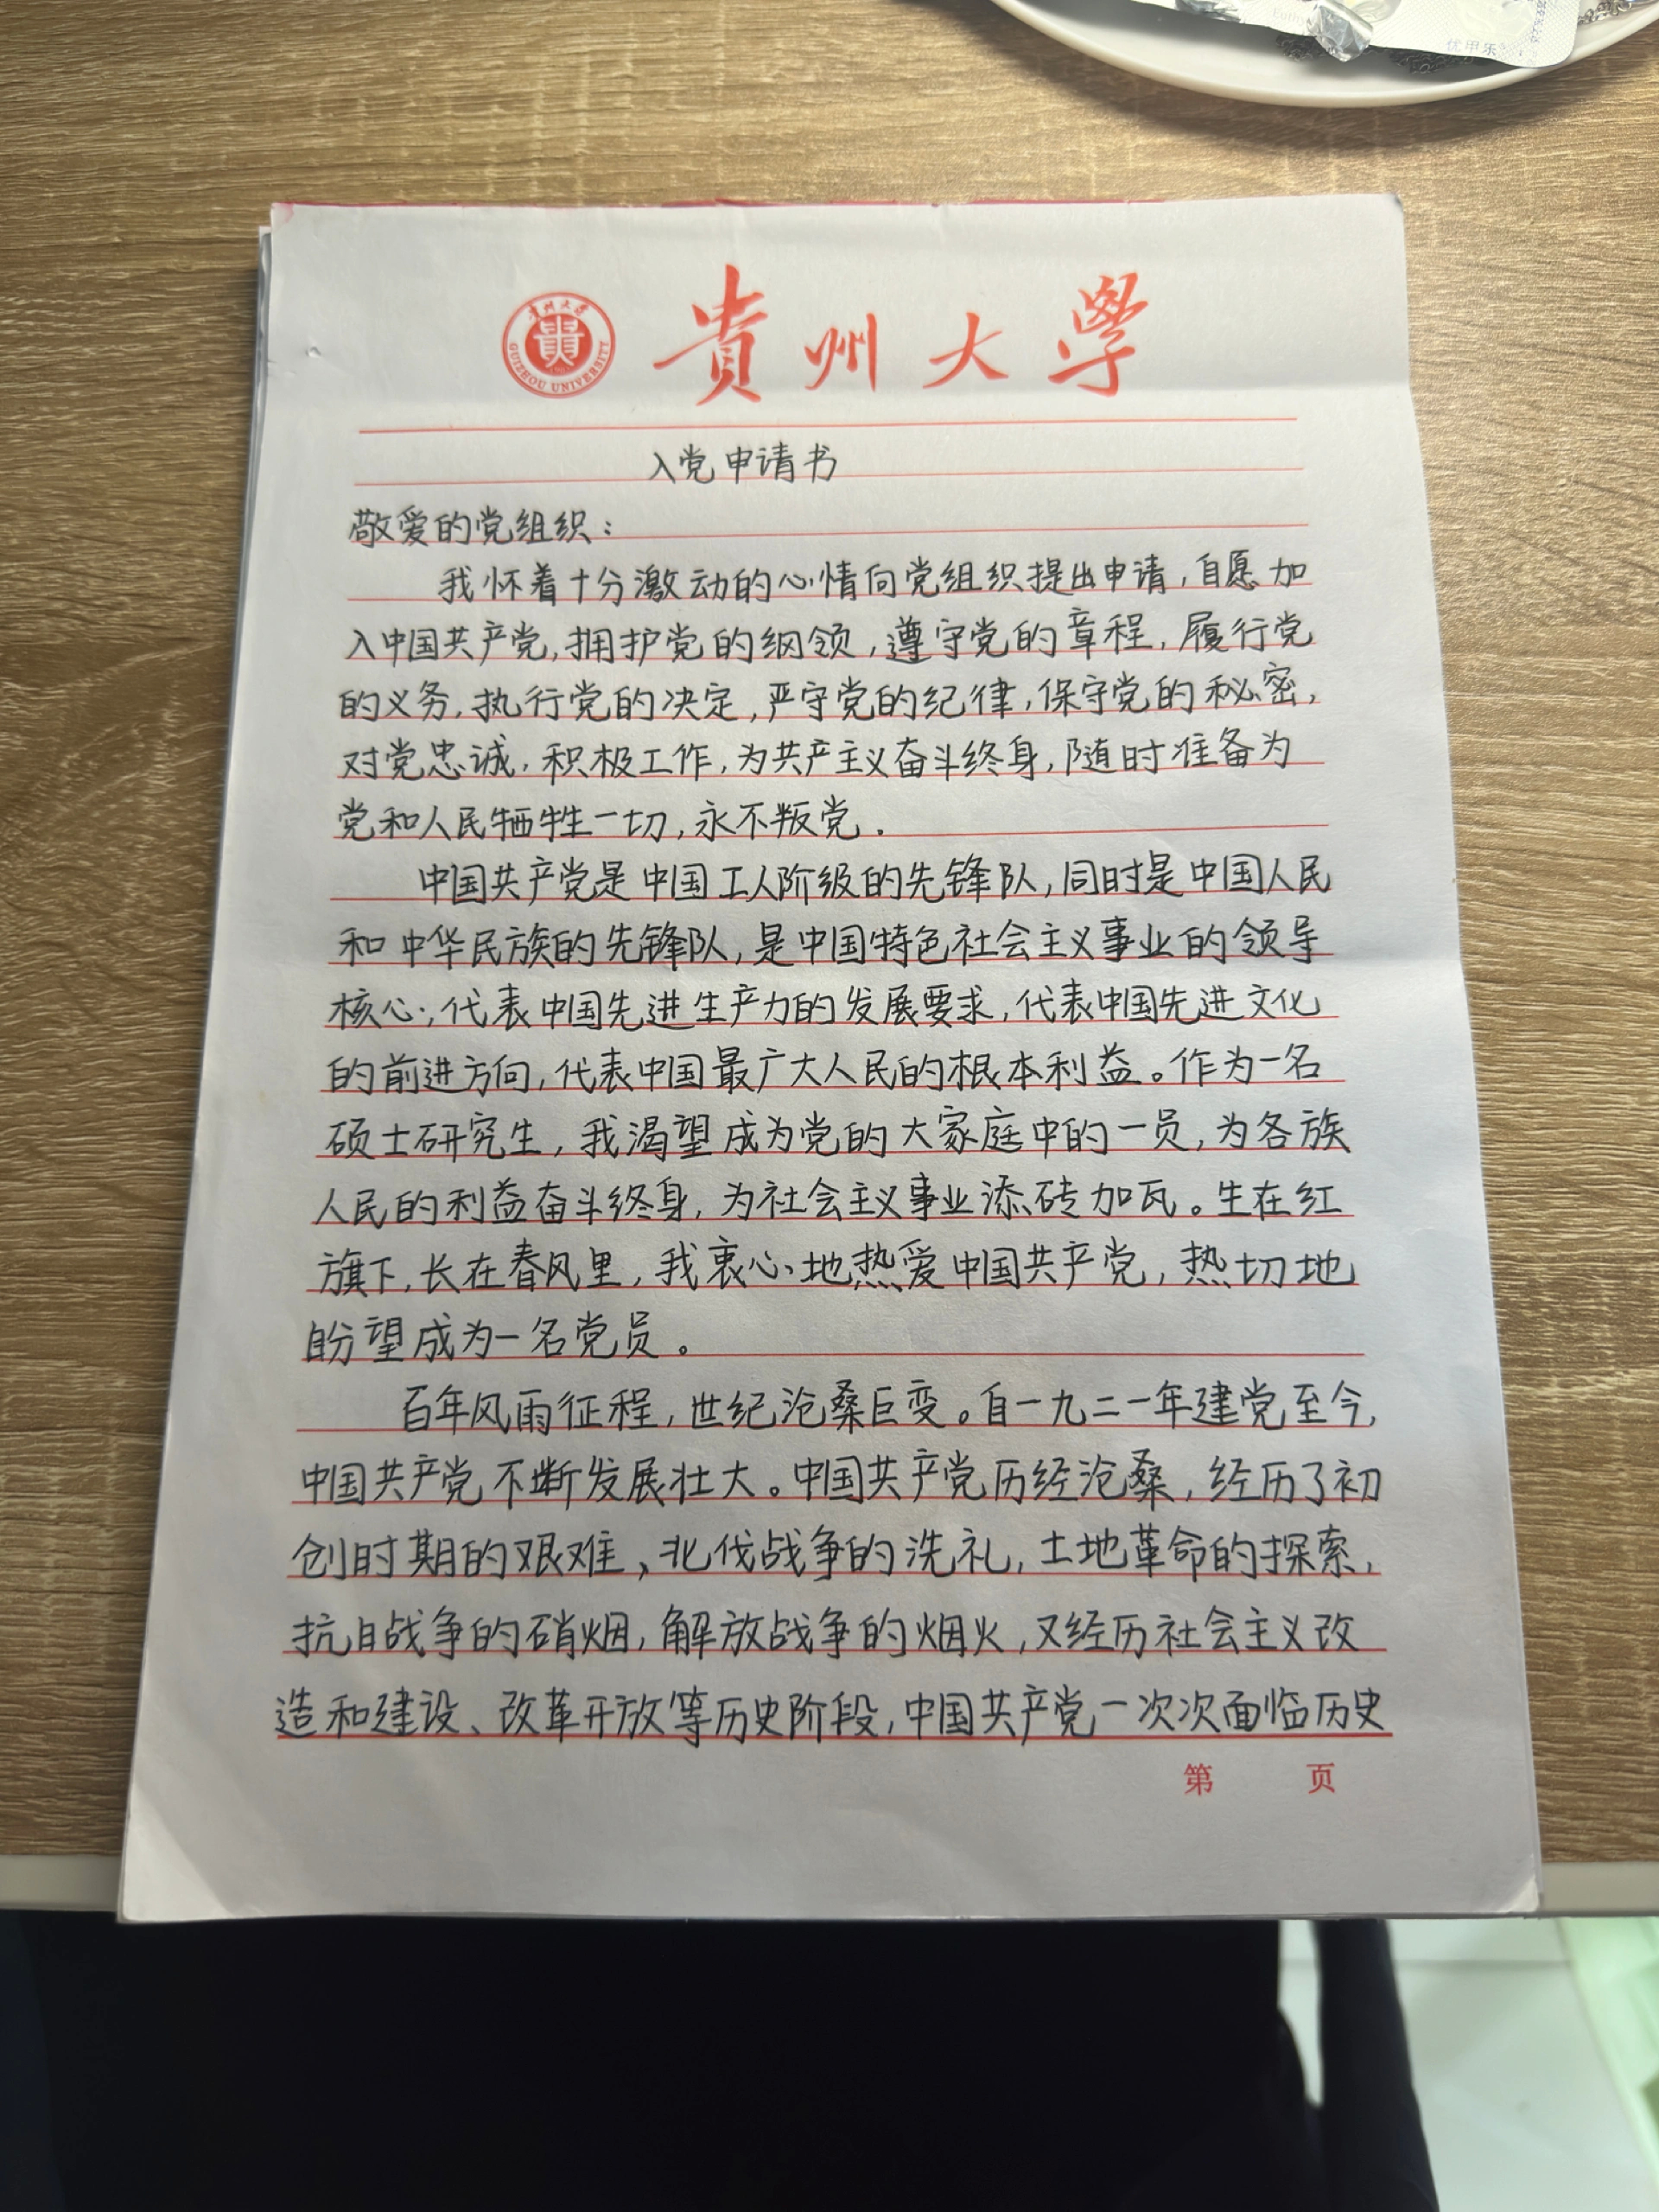 Euthy
优甲乐
貴州大學
貴
GUIZHOU UNIVERSITY
貴州大學
入党申请书
敬爱的党组织：
我怀着十分激动的心情向党组织提出申请，自愿加
入中国共产党，拥护党的纲领，遵守党的章程，履行党
的义务，执行党的决定，严守党的纪律，保守党的秘密，
对党忠诚，积极工作，为共产主义奋斗终身，随时准备为
党和人民牺牲一切，永不叛党．
中国共产党是中国工人阶级的先锋队，同时是中国人民
和中华民族的先锋队，是中国特色社会主义事业的领导
核心，代表中国先进生产力的发展要求，代表中国先进文化
的前进方向，代表中国最广大人民的根本利益。作为一名
硕士研究生，我渴望成为党的大家庭中的一员，为各族
人民的利益奋斗终身，为社会主义事业添砖加瓦。生在红
旗下，长在春风里，我衷心地热爱中国共产党，热切地
盼望成为一名党员。
百年风雨征程，世纪沧桑巨变。自一九二一年建党至今，
中国共产党不断发展壮大。中国共产党历经沧桑，经历了初
创时期的艰难、北伐战争的洗礼，土地革命的探索，
抗日战争的硝烟，解放战争的烟火，又经历社会主义改
造和建设、改革开放等历史阶段，中国共产党一次次面临历史
第 页